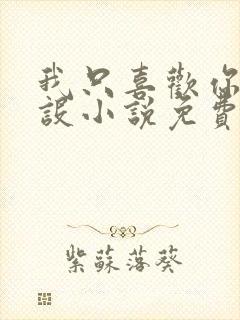 我只喜歡你
設小說免費
紫蘇落葵